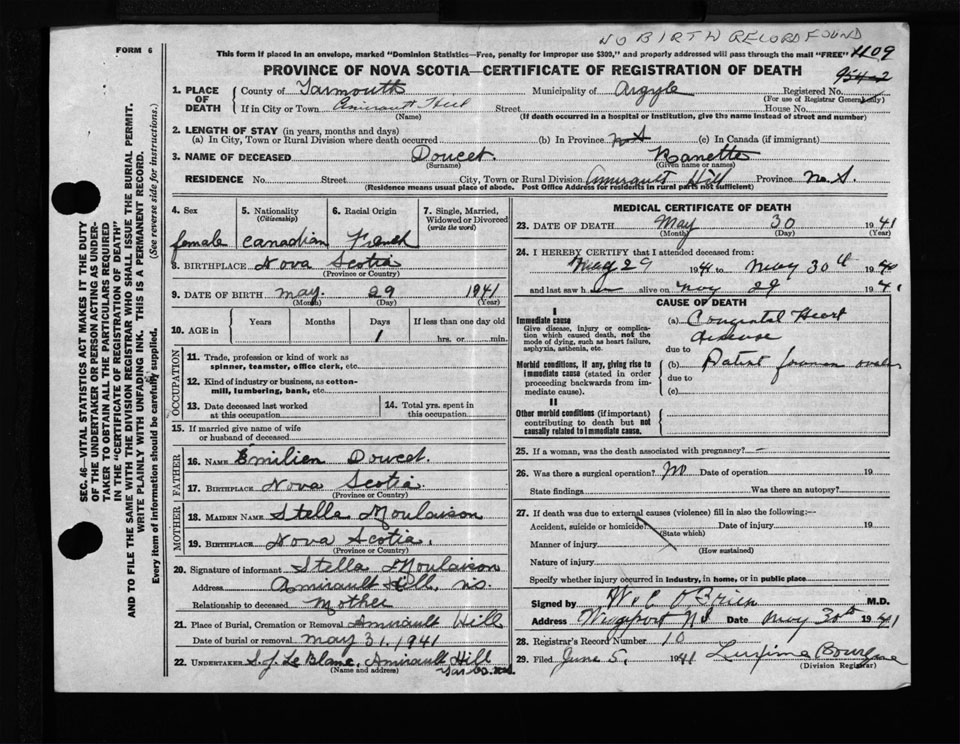 NO BIRTH RECORD FOUND
FORM 6
This form if placed in an envelope, marked "Dominion Statistics—Free, penalty for improper use $300," and properly addressed will pass through the mail "FREE"
1109
PROVINCE OF NOVA SCOTIA—CERTIFICATE OF REGISTRATION OF DEATH
1. PLACE OF DEATH
County of Yarmouth Municipality of Argyle Registered No.
(For use of Registrar Generally)
If in City or Town Amirault Hill Street House No.
(Name) (If death occurred in a hospital or institution, give the name instead of street and number)
2. LENGTH OF STAY (in years, months and days)
(a) In City, Town or Rural Division where death occurred (b) In Province N.S (c) In Canada (if immigrant)
3. NAME OF DECEASED Doucet. Nanette
(Surname) (Given name or names)
RESIDENCE No. Street City, Town or Rural Division Amirault Hill Province N.S.
(Residence means usual place of abode. Post Office Address for residents in rural parts not sufficient)
4. Sex female
5. Nationality (Citizenship) Canadian
6. Racial Origin French
7. Single, Married, Widowed or Divorced (write the word)
8. BIRTHPLACE Nova Scotia
(Province or Country)
9. DATE OF BIRTH May. 29 1941
(Month) (Day) (Year)
10. AGE in Years Months Days If less than one day old
1 hrs. or min.
OCCUPATION
11. Trade, profession or kind of work as spinner, teamster, office clerk, etc.
12. Kind of industry or business, as cotton-mill, lumbering, bank, etc.
13. Date deceased last worked at this occupation
14. Total yrs. spent in this occupation
15. If married give name of wife or husband of deceased
FATHER
16. NAME Emilien Doucet.
17. BIRTHPLACE Nova Scotia.
(Province or Country)
MOTHER
18. MAIDEN NAME Stella Moulaison
19. BIRTHPLACE Nova Scotia.
(Province or Country)
20. Signature of informant Stella Moulaison
Address Amirault Hill, N.S.
Relationship to deceased Mother
21. Place of Burial, Cremation or Removal Amirault Hill
Date of burial or removal May 31, 1941
22. UNDERTAKER S.J. LeBlanc, Amirault Hill
(Name and address) Yar. Co. N.S.
MEDICAL CERTIFICATE OF DEATH
23. DATE OF DEATH May 30 1941
(Month) (Day) (Year)
24. I HEREBY CERTIFY that I attended deceased from:
May 29 1941 to May 30th 19
and last saw h alive on May 29 194
CAUSE OF DEATH
I
Immediate cause
Give disease, injury or complication which caused death, not the mode of dying, such as heart failure, asphyxia, asthenia, etc.
(a) Congenital Heart
disease
due to
Morbid conditions, if any, giving rise to immediate cause (stated in order proceeding backwards from immediate cause).
(b) Patent foramen ovale
due to
(c)
II
Other morbid conditions (if important) contributing to death but not causally related to immediate cause.
25. If a woman, was the death associated with pregnancy? —
26. Was there a surgical operation? No Date of operation 19
State findings Was there an autopsy?
27. If death was due to external causes (violence) fill in also the following:—
Accident, suicide or homicide Date of injury 19
(State which)
Manner of injury
(How sustained)
Nature of injury
Specify whether injury occurred in industry, in home, or in public place
Signed by W C O'Brien M.D.
Address Wedgeport NS Date May 30th 1941
28. Registrar's Record Number 10
29. Filed June 5, 1941
(Division Registrar)
SEC. 46—VITAL STATISTICS ACT MAKES IT THE DUTY
OF THE UNDERTAKER OR PERSON ACTING AS UNDERTAKER TO OBTAIN ALL THE PARTICULARS REQUIRED
IN THE "CERTIFICATE OF REGISTRATION OF DEATH"
AND TO FILE THE SAME WITH THE DIVISION REGISTRAR WHO SHALL ISSUE THE BURIAL PERMIT.
WRITE PLAINLY WITH UNFADING INK. THIS IS A PERMANENT RECORD.
Every item of information should be carefully supplied. (See reverse side for instructions.)